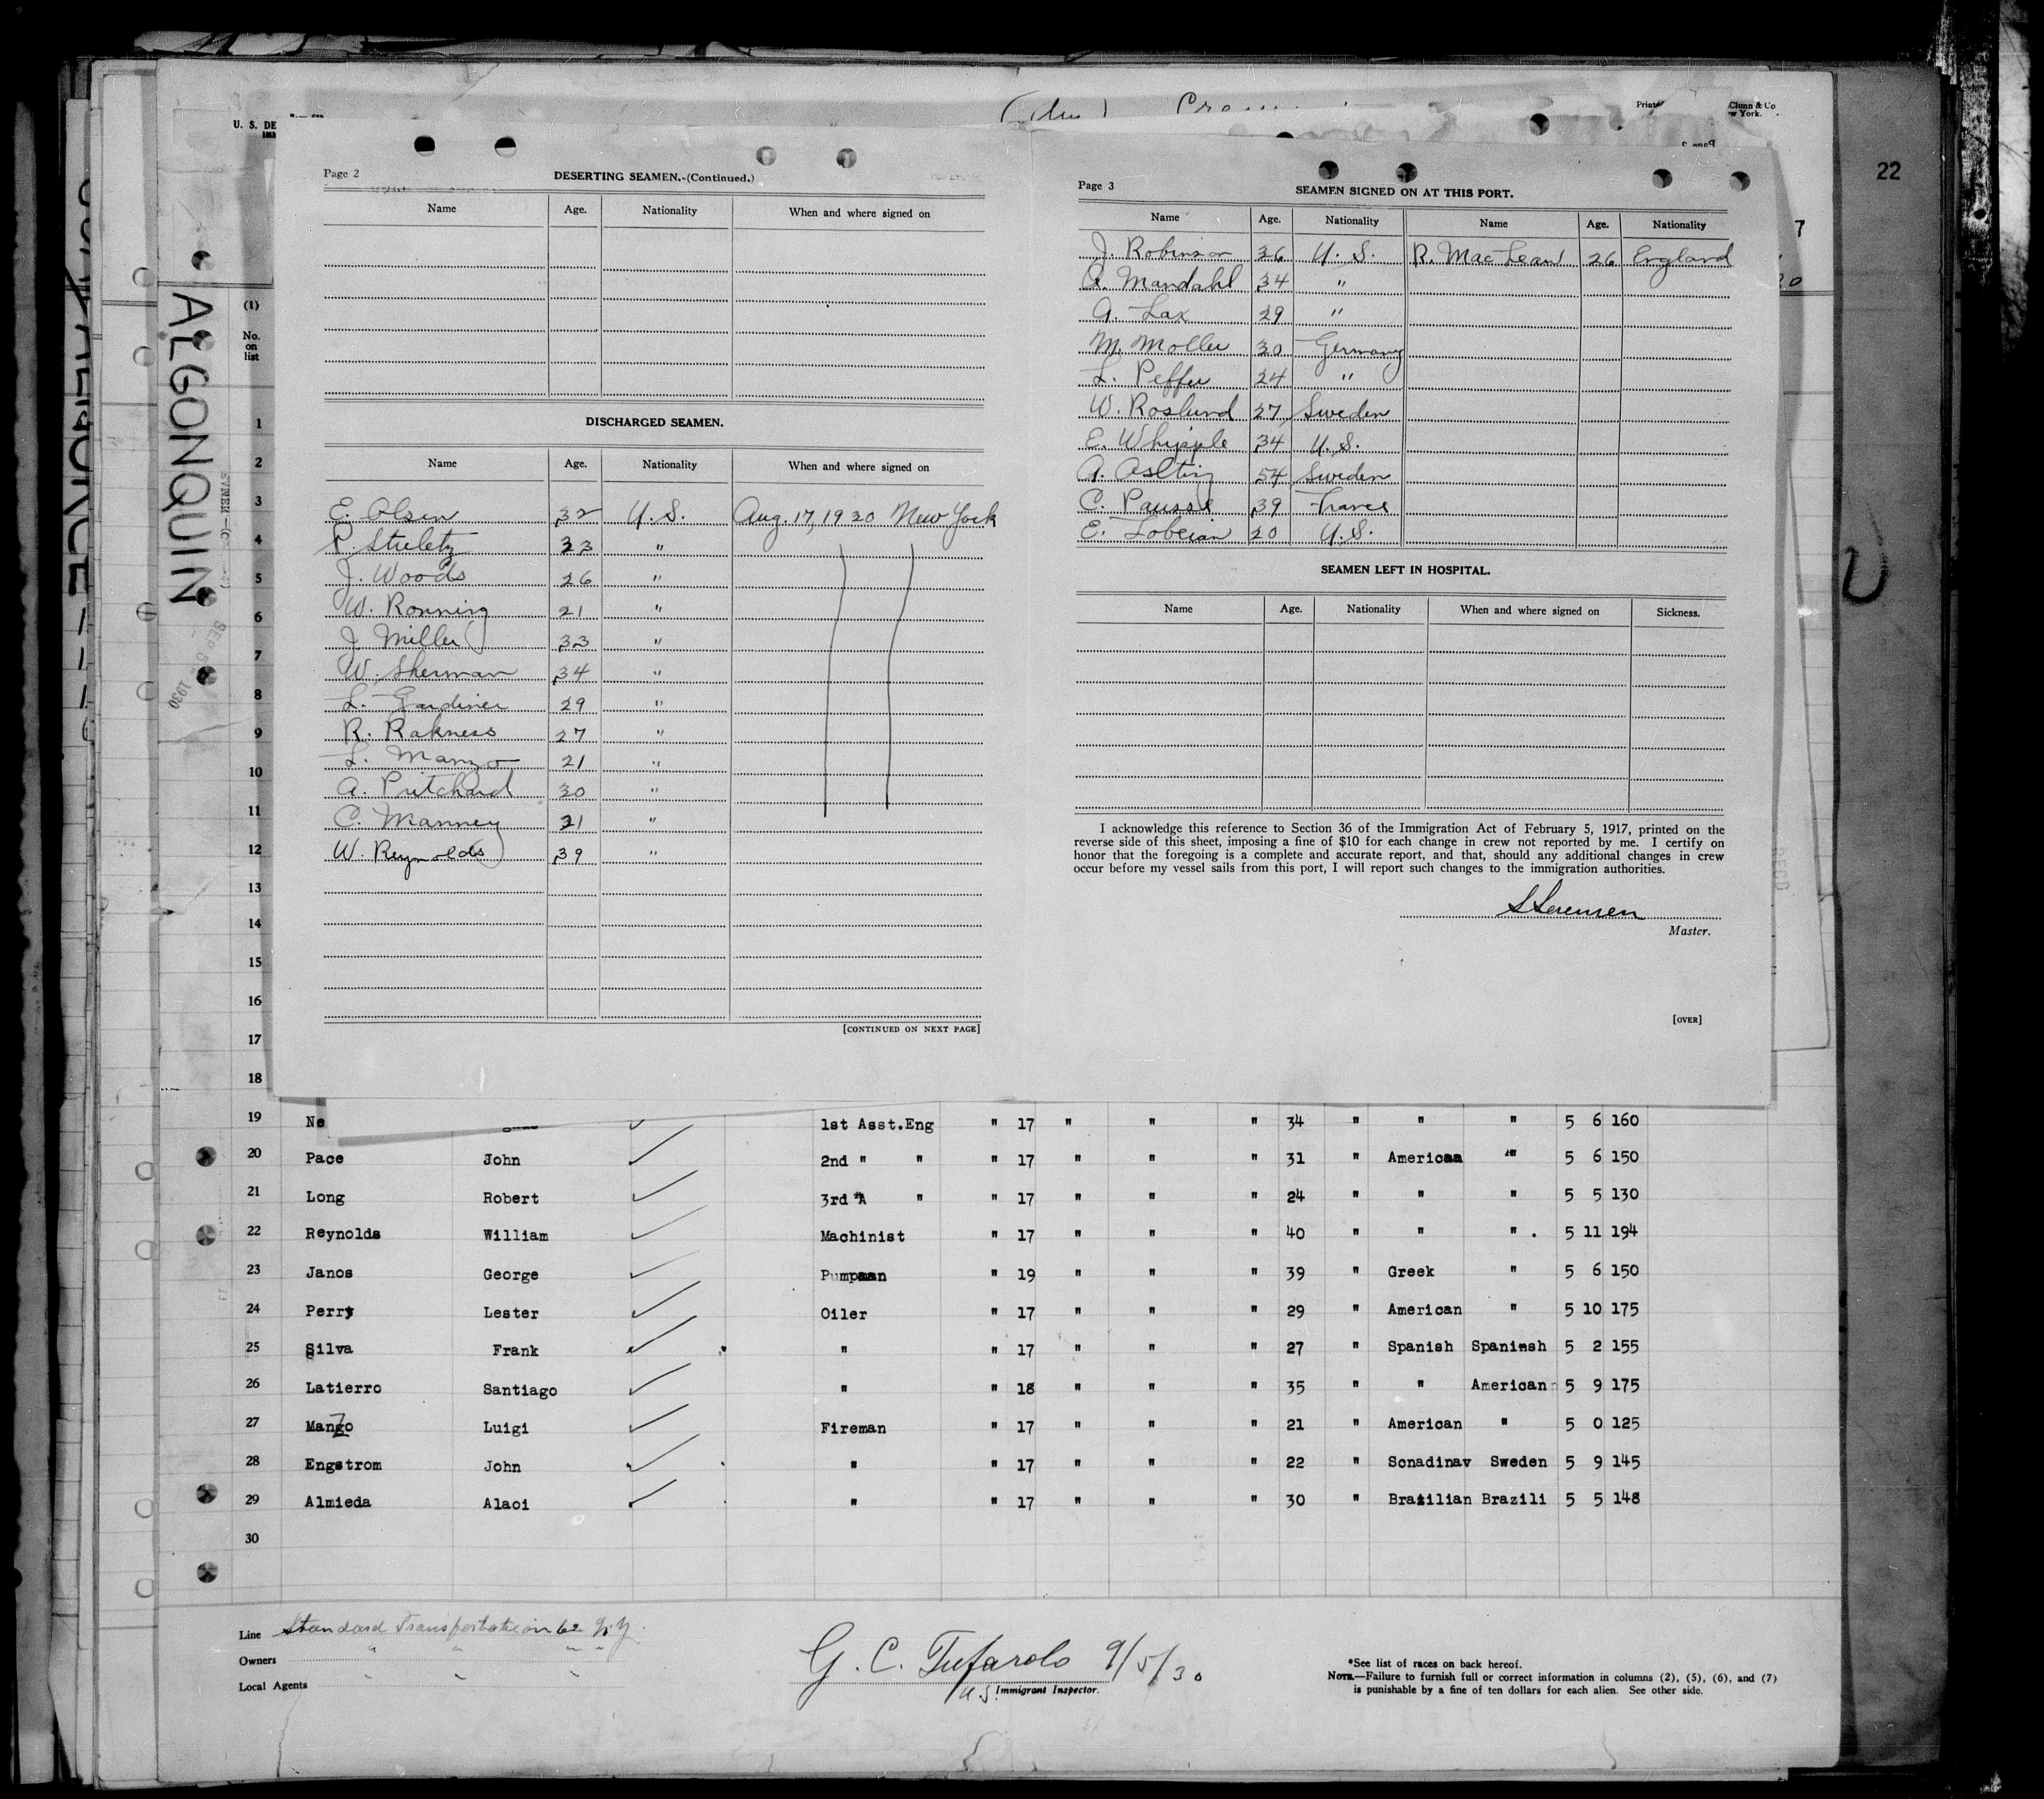 22
U. S. DE
Clunn & Co
w York.
ALGONQUIN
SEP 5 1930
(1)
No.
on
list
Page 2
DESERTING SEAMEN.-(Continued.)
Name Age. Nationality When and where signed on
DISCHARGED SEAMEN.
Name Age. Nationality When and where signed on
E. Olsen 32 U.S. Aug. 17, 1930 New York
P. Streletz 23 "
J. Woods 26 "
W. Ronning 21 "
J. Miller 33 "
W. Sherman 34 "
L. Gardiner 29 "
R. Rakness 27 "
L. Manzo 21 "
A. Pritchard 30 "
C. Manney 21 "
W. Reynolds 39 "
[CONTINUED ON NEXT PAGE]
Page 3
SEAMEN SIGNED ON AT THIS PORT.
Name Age. Nationality Name Age. Nationality
J. Robinson 36 U.S. R. MacLean 26 England
A. Mandahl 34 "
A. Lax 29 "
M. Moller 30 Germany
L. Peffer 24 "
W. Roslund 27 Sweden
E. Whipple 34 U.S.
A. Aslting 54 Sweden
C. Paussé 39 France
E. Lobeian 20 U.S.
SEAMEN LEFT IN HOSPITAL.
Name Age. Nationality When and where signed on Sickness.
I acknowledge this reference to Section 36 of the Immigration Act of February 5, 1917, printed on the
reverse side of this sheet, imposing a fine of $10 for each change in crew not reported by me. I certify on
honor that the foregoing is a complete and accurate report, and that, should any additional changes in crew
occur before my vessel sails from this port, I will report such changes to the immigration authorities.
S Sorensen
Master.
[OVER]
1
2
3
4
5
6
7
8
9
10
11
12
13
14
15
16
17
18
19 Ne 1st Asst.Eng " 17 " " " 34 " " " 5 6 160
20 Pace John 2nd " " " 17 " " " 31 " American " 5 6 150
21 Long Robert 3rd "A " " 17 " " " 24 " " " 5 5 130
22 Reynolds William Machinist " 17 " " " 40 " " " . 5 11 194
23 Janos George Pumpman " 19 " " " 39 " Greek " 5 6 150
24 Perry Lester Oiler " 17 " " " 29 " American " 5 10 175
25 Silva Frank " " 17 " " " 27 " Spanish Spaninsh 5 2 155
26 Latierro Santiago " " 18 " " " 35 " " American 5 9 175
27 Manzo Luigi Fireman " 17 " " " 21 " American " 5 0 125
28 Engstrom John " " 17 " " " 22 " Scnadinav Sweden 5 9 145
29 Almieda Alaoi " " 17 " " " 30 " Brazilian Brazili 5 5 148
30
Line Standard Transportation Co N.Y.
Owners " " " "
Local Agents " " "
G. C. Tufarolo 9/5/30
U.S. Immigrant Inspector.
*See list of races on back hereof.
NOTE.—Failure to furnish full or correct information in columns (2), (5), (6), and (7)
is punishable by a fine of ten dollars for each alien. See other side.